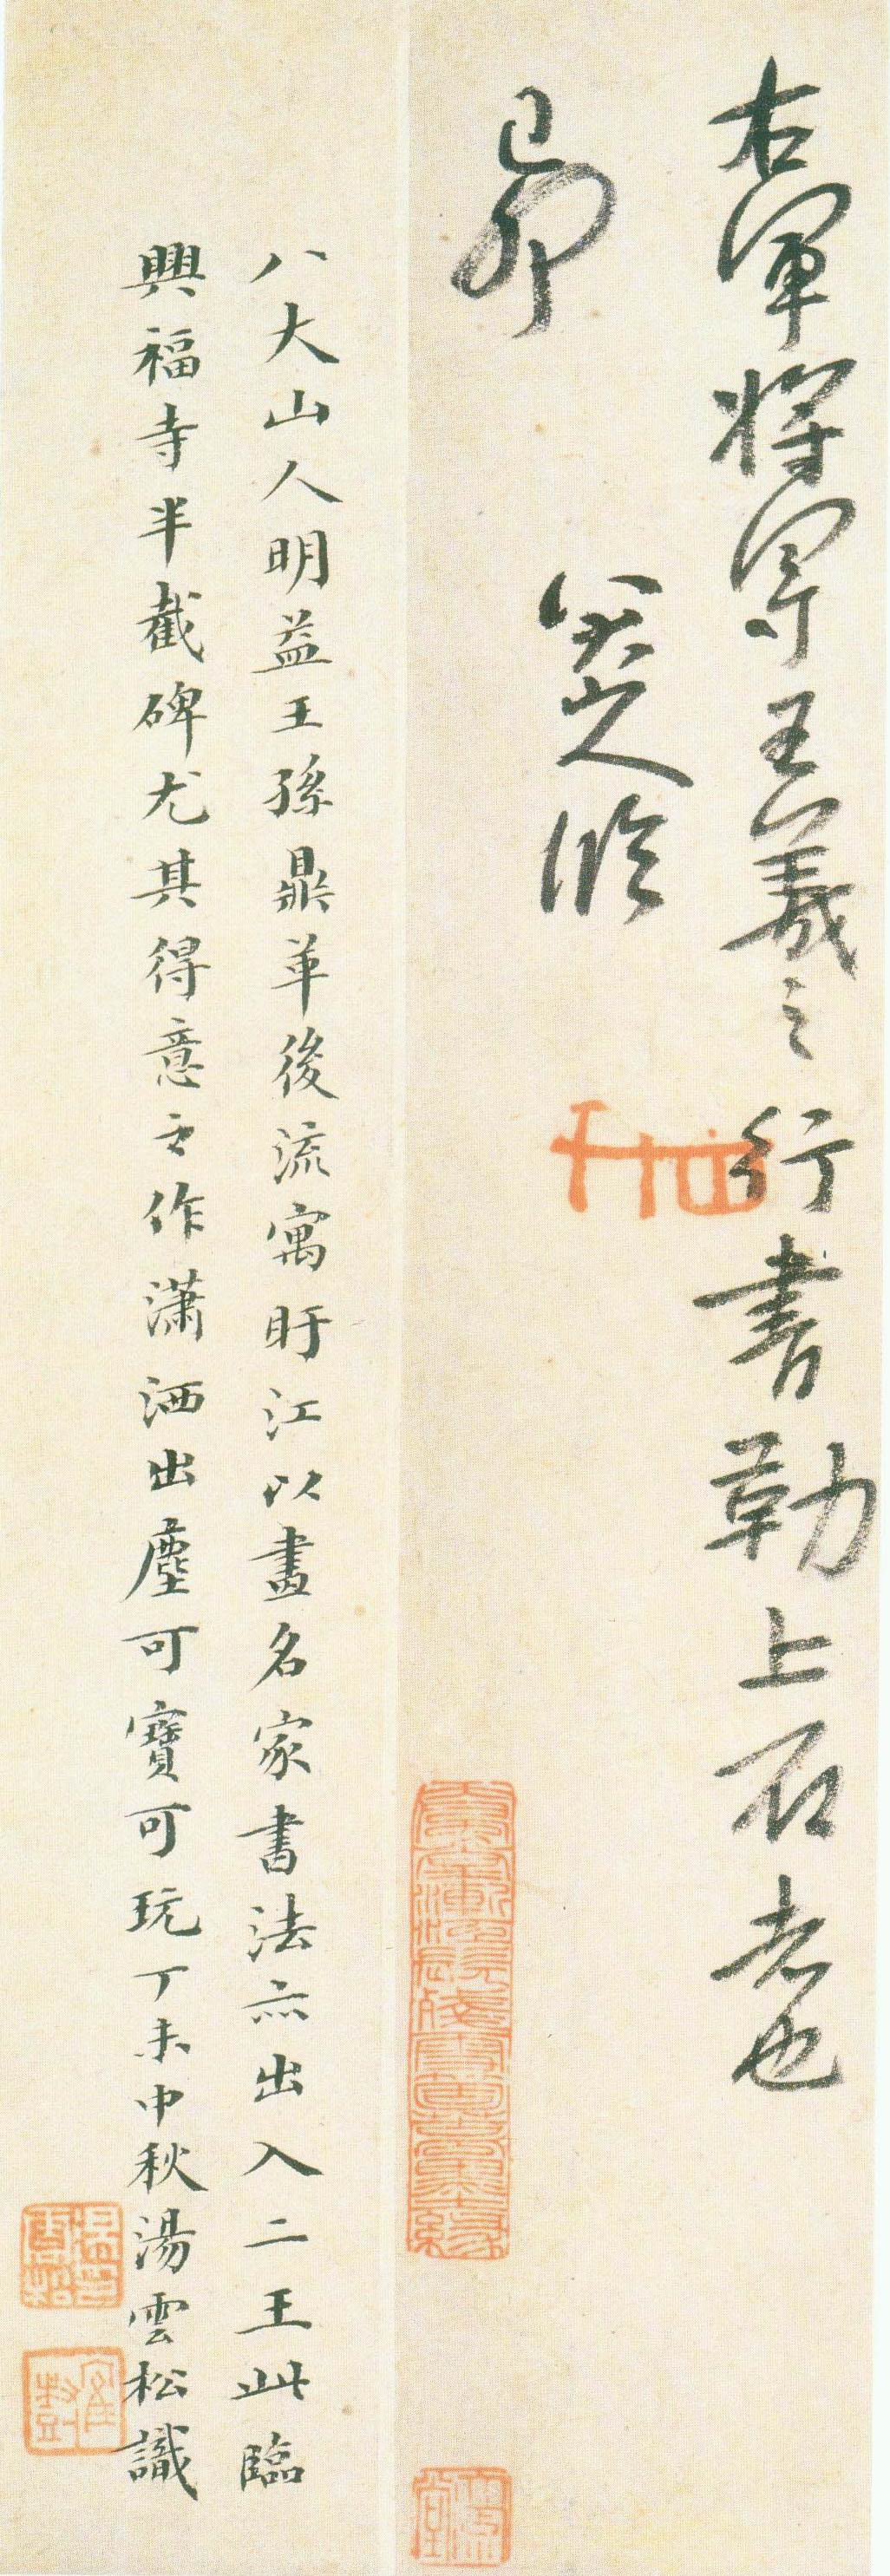 右軍將軍王羲之行書勒上石者也
八大山人臨
己卯
八大山人明益王孫鼎革後流寓盱江以畫名家書法亦出入二王此臨
興福寺半截碑尤其得意之作瀟洒出塵可寶可玩丁未中秋湯雲松識